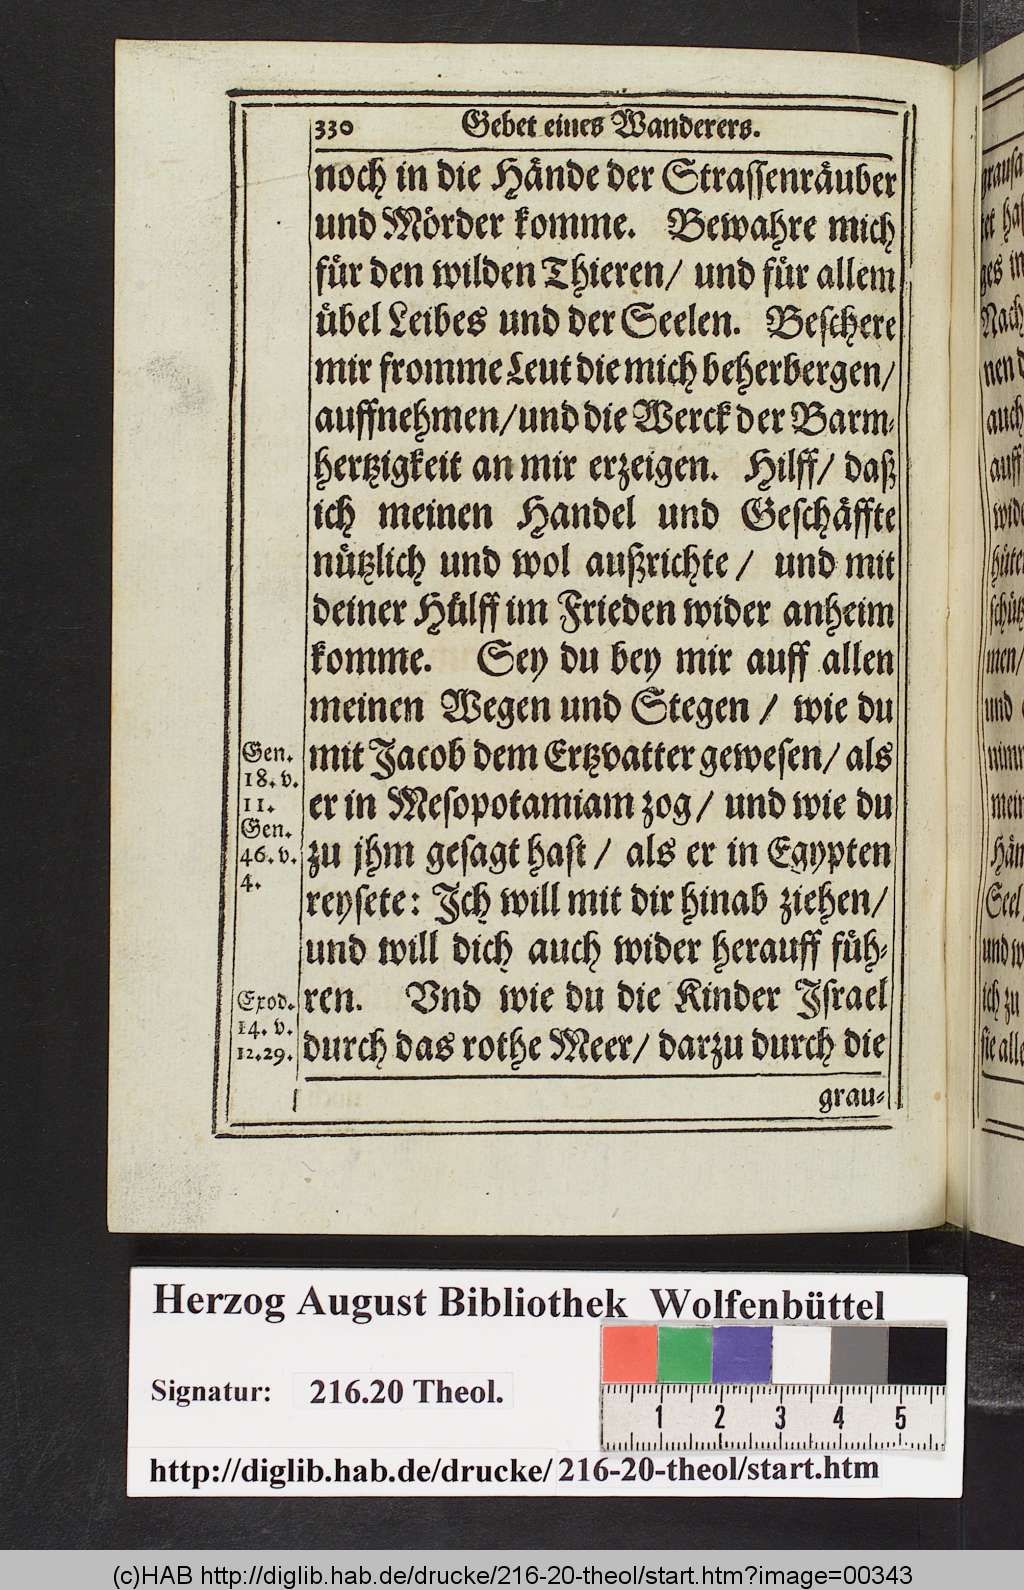 330 Gebet eines Wanderers.
noch in die Hände der Strassenräuber
und Mörder komme. Bewahre mich
für den wilden Thieren/ und für allem
übel Leibes und der Seelen. Beschere
mir fromme Leut die mich beherbergen/
auffnehmen/ und die Werck der Barm-
hertzigkeit an mir erzeigen. Hilff/ daß
ich meinen Handel und Geschäffte
nützlich und wol außrichte/ und mit
deiner Hülff im Frieden wider anheim
komme. Sey du bey mir auff allen
meinen Wegen und Stegen/ wie du
mit Jacob dem Ertzvatter gewesen/ als
er in Mesopotamiam zog/ und wie du
zu jhm gesagt hast/ als er in Egypten
reysete: Jch will mit dir hinab ziehen/
und will dich auch wider herauff füh-
ren. Vnd wie du die Kinder Jsrael
durch das rothe Meer/ darzu durch die
grau-
Gen.
18. v.
11.
Gen.
46. v.
4.
Exod.
14. v.
12. 29.
Herzog August Bibliothek Wolfenbüttel
Signatur: 216.20 Theol.
1 2 3 4 5
http://diglib.hab.de/drucke/216-20-theol/start.htm
(c)HAB http://diglib.hab.de/drucke/216-20-theol/start.htm?image=00343